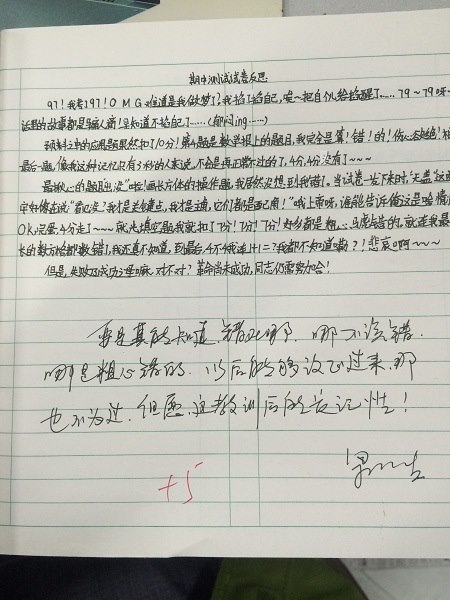 期中测试试卷反思
97！我考了97！OMG难道是我做梦了？我掐了掐自己，唉~把自个儿给掐醒了……79~79呀~
话里的故事都是骗人滴！早知道不掐自己了……（郁闷ing……）
预料之中的应用题果然扣了10分！第4题是数学报上的题目，我完全是算！错！的！伤心欲绝！
最后一题，像我这种记忆只有3秒的人来说，不会是再正常不过的了，4分，4分没有了~~~
最揪心的题目出没"啦！画长方体的操作题，我居然没想到我错了。当试卷一发下来时，"无盖"这
字好像在说"看见没？我才是关键点，我才是主演，它们都是配角！"哦上帝呀，谁能告诉俺这是啥情
OK，记蛋4分走了~~~就光填空题我就扣了7分！7分！7分！好多都是粗心马虎错的，就连我最
长的数方块都数错了，我还真不知道，到最后，4不俄连1+1=？我都不知道嘞？！悲哀啊~~~
但是，失败乃成功之母嘛，对不对？革命尚未成功，同志仍需努加哈！
要是真的知道，错在哪，哪不该错，
哪是粗心错的，以后能够改正过来，那
也不为过，但愿这教训后能长记性！
+5